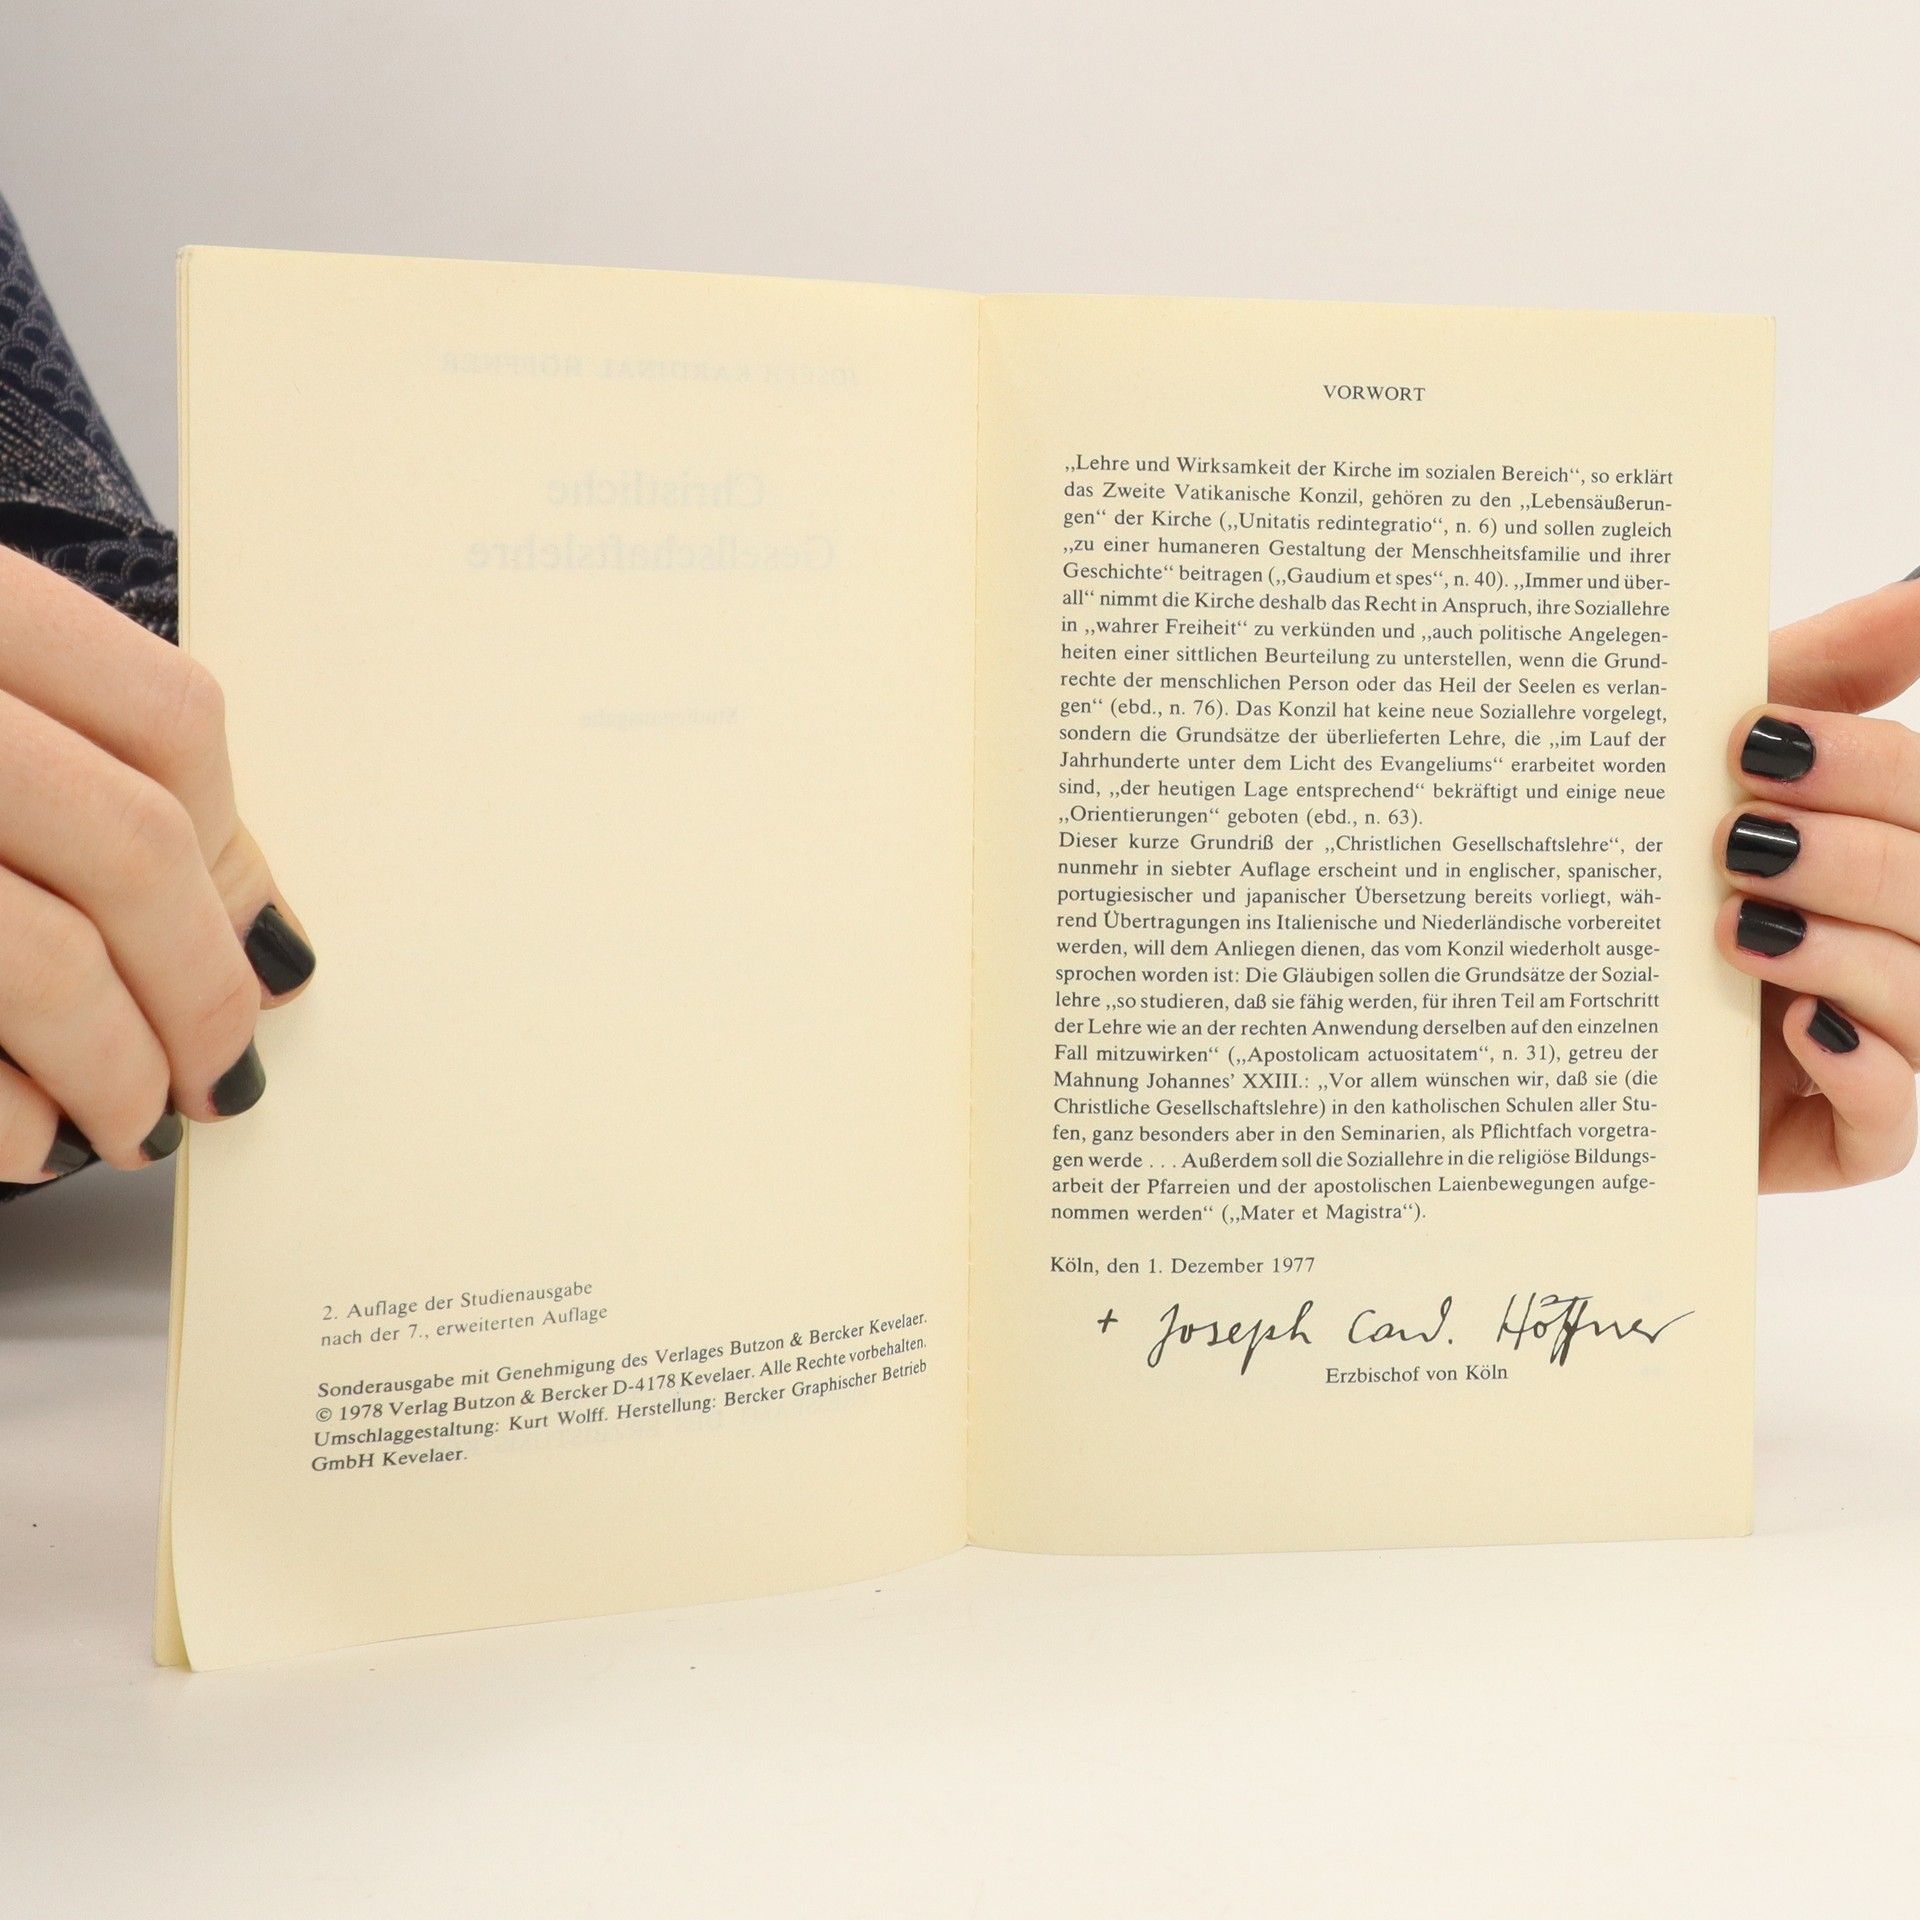 2. Auflage der Studienausgabe
nach der 7., erweiterten Auflage
Sonderausgabe mit Genehmigung des Verlages Butzon & Bercker Kevelaer.
© 1978 Verlag Butzon & Bercker D-4178 Kevelaer. Alle Rechte vorbehalten.
Umschlaggestaltung: Kurt Wolff. Herstellung: Bercker Graphischer Betrieb
GmbH Kevelaer.
VORWORT
„Lehre und Wirksamkeit der Kirche im sozialen Bereich“, so erklärt
das Zweite Vatikanische Konzil, gehören zu den „Lebensäußerun-
gen“ der Kirche („Unitatis redintegratio“, n. 6) und sollen zugleich
„zu einer humaneren Gestaltung der Menschheitsfamilie und ihrer
Geschichte“ beitragen („Gaudium et spes“, n. 40). „Immer und über-
all“ nimmt die Kirche deshalb das Recht in Anspruch, ihre Soziallehre
in „wahrer Freiheit“ zu verkünden und „auch politische Angelegen-
heiten einer sittlichen Beurteilung zu unterstellen, wenn die Grund-
rechte der menschlichen Person oder das Heil der Seelen es verlan-
gen“ (ebd., n. 76). Das Konzil hat keine neue Soziallehre vorgelegt,
sondern die Grundsätze der überlieferten Lehre, die „im Lauf der
Jahrhunderte unter dem Licht des Evangeliums“ erarbeitet worden
sind, „der heutigen Lage entsprechend“ bekräftigt und einige neue
„Orientierungen“ geboten (ebd., n. 63).
Dieser kurze Grundriß der „Christlichen Gesellschaftslehre“, der
nunmehr in siebter Auflage erscheint und in englischer, spanischer,
portugiesischer und japanischer Übersetzung bereits vorliegt, wäh-
rend Übertragungen ins Italienische und Niederländische vorbereitet
werden, will dem Anliegen dienen, das vom Konzil wiederholt ausge-
sprochen worden ist: Die Gläubigen sollen die Grundsätze der Sozial-
lehre „so studieren, daß sie fähig werden, für ihren Teil am Fortschritt
der Lehre wie an der rechten Anwendung derselben auf den einzelnen
Fall mitzuwirken“ („Apostolicam actuositatem“, n. 31), getreu der
Mahnung Johannes’ XXIII.: „Vor allem wünschen wir, daß sie (die
Christliche Gesellschaftslehre) in den katholischen Schulen aller Stu-
fen, ganz besonders aber in den Seminarien, als Pflichtfach vorgetra-
gen werde . . . Außerdem soll die Soziallehre in die religiöse Bildungs-
arbeit der Pfarreien und der apostolischen Laienbewegungen aufge-
nommen werden“ („Mater et Magistra“).
Köln, den 1. Dezember 1977
+ Joseph Card. Höffner
Erzbischof von Köln